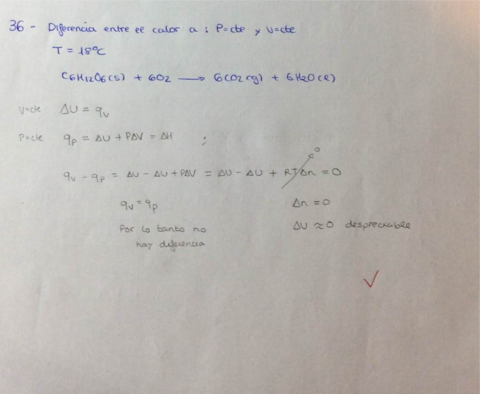 36 - Diferencia entre el calor a : P=cte y V=cte
T = 18ºC
C6H12O6(s) + 6O2 ⟶ 6CO2(g) + 6H2O(l)
V=cte ΔU = qv
P=cte qp = ΔU + PΔV = ΔH ;
qv - qp = ΔU - ΔU + PΔV = ΔU - ΔU + RTΔn = 0
0
qv = qp Δn = 0
Por lo tanto no ΔU ≈ 0 despreciable
hay diferencia
✓